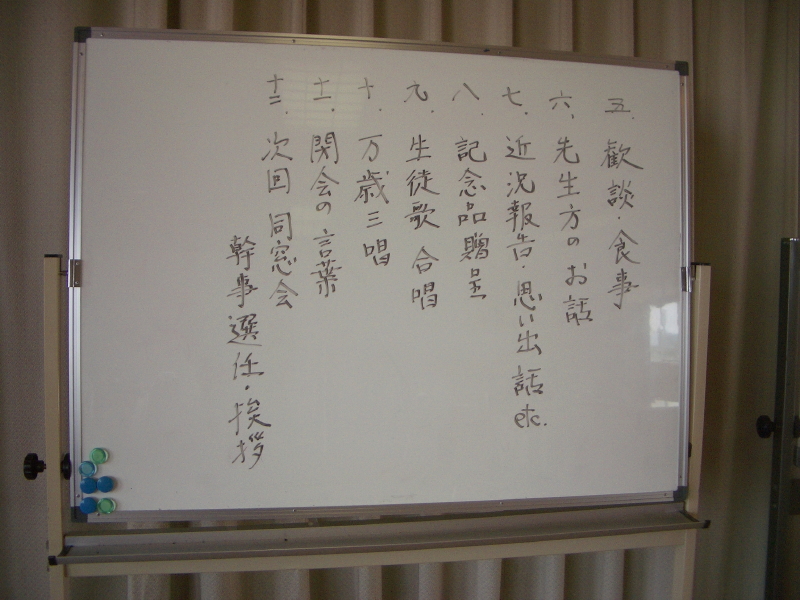 五. 歓談・食事
六. 先生方のお話
七. 近況報告・思い出話 etc.
八. 記念品贈呈
九. 生徒歌合唱
十. 万歳三唱
十一. 閉会の言葉
十二. 次回同窓会
幹事選任・挨拶